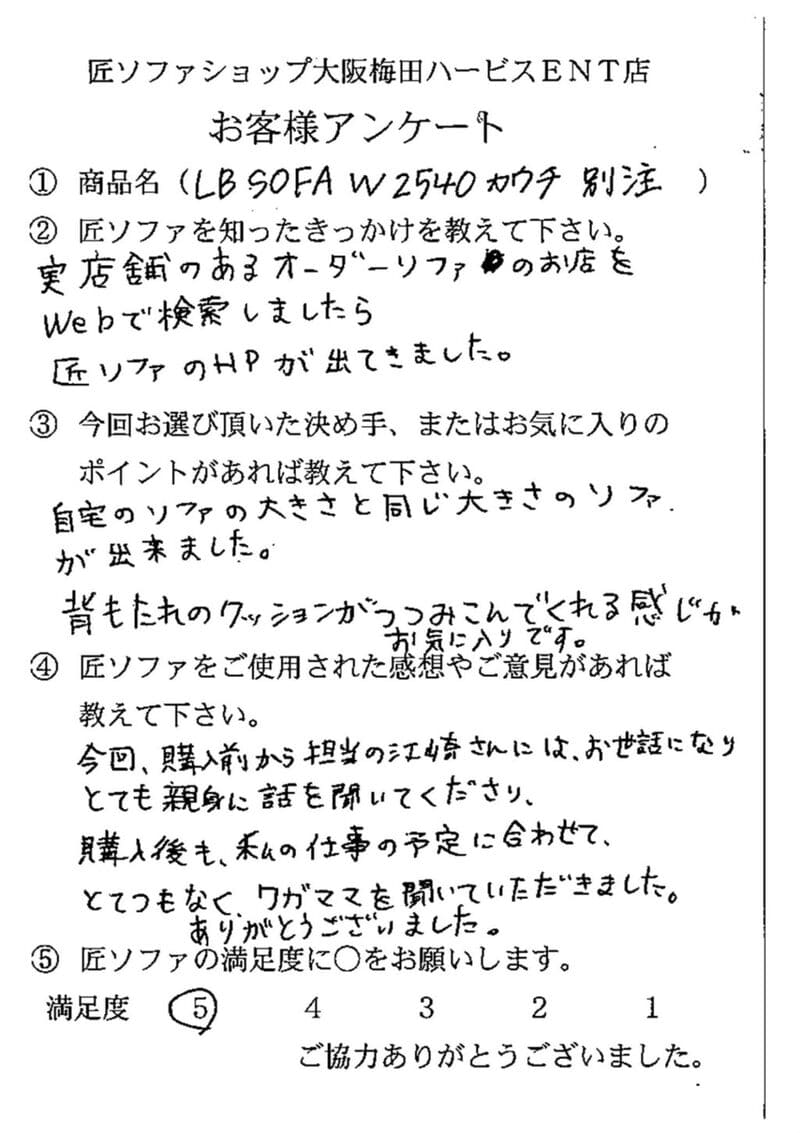 匠ソファショップ大阪梅田ハービスENT店
お客様アンケート
① 商品名（LB SOFA W2540 カウチ 別注 ）
② 匠ソファを知ったきっかけを教えて下さい。
実店舗のあるオーダーソファのお店を
Webで検索しましたら
匠ソファのHPが出てきました。
③ 今回お選び頂いた決め手、またはお気に入りの
ポイントがあれば教えて下さい。
自宅のソファの大きさと同じ大きさのソファ
が出来ました。
背もたれのクッションがつつみこんでくれる感じが
お気に入りです。
④ 匠ソファをご使用された感想やご意見があれば
教えて下さい。
今回、購入前から担当の江崎さんには、お世話になり
とても親身に話を聞いてくださり、
購入後も、私の仕事の予定に合わせて、
とてつもなく、ワガママを聞いていただきました。
ありがとうございました。
⑤ 匠ソファの満足度に○をお願いします。
満足度 5 4 3 2 1
ご協力ありがとうございました。